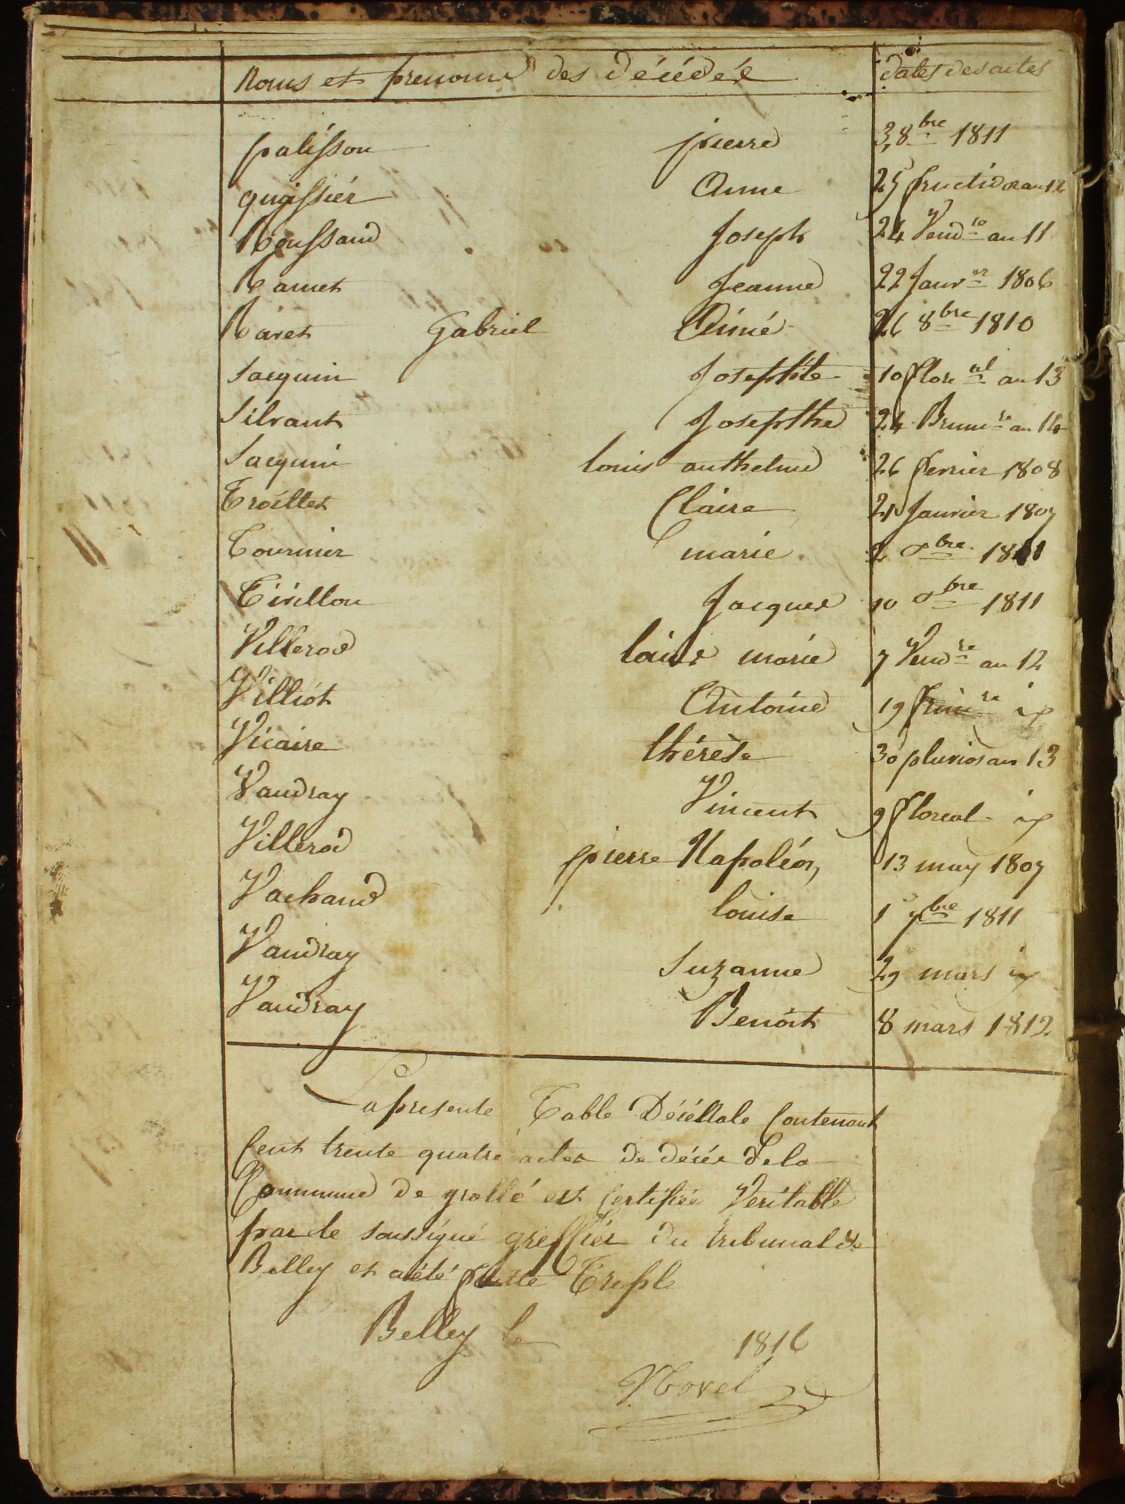 Noms et prenoms des décédés dates des actes
palisson pierre 3 8bre 1811
quissier Anne 25 fructidor an 12
Roussand Joseph 24 Vendre an 11
Ramet Jeanne 22 Janvr 1806
Ravet Gabriel Aimé 26 8bre 1810
Jacquin Josephte 10 floreal an 13
Silvant Josepthe 24 Brumre an 14
Jacquin louis anthelme 26 fevrier 1808
Troillet Claire 21 Janvier 1807
Tournier marie 2 8bre 1811
Tirillon Jacques 10 8bre 1811
Villerod marie 7 Vendre an 12
Villiot Antoine 19 frimre ix
Vicaire thérèse 30 pluvios an 13
Vaudray Vincent 9 floreal ix
Villerod pierre Napoléon, 13 may 1807
Vachaud louise 1 7bre 1811
Vaudray Suzanne 29 mars ix
Vaudray Benoit 8 mars 1812
La presente Table Décéllale Contenant
Cent trente quatre actes de décés de la
Commune de grollé est Certifiée Veritable
par le soussigné greffier du tribunal de
Belley et a été faitte Triple
Belley le 1816
Morel